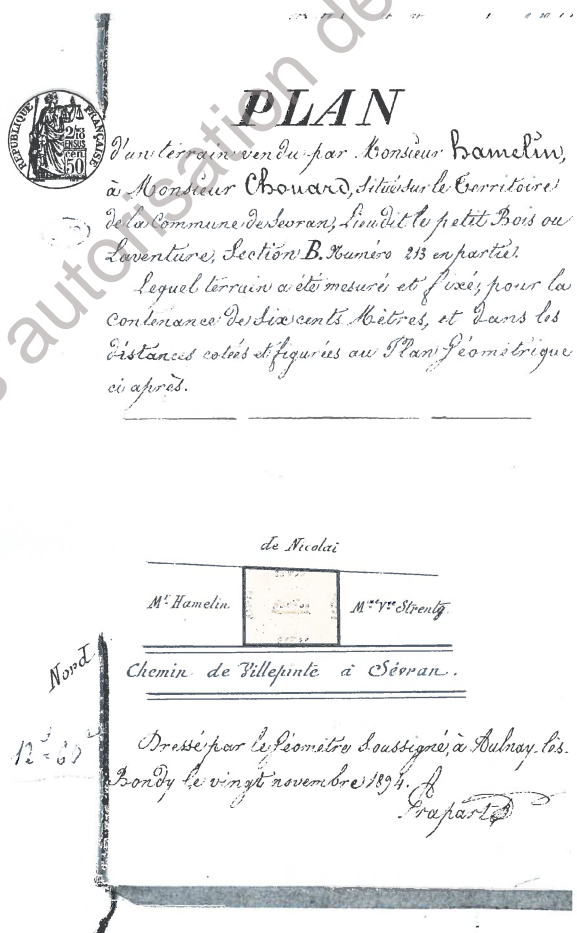 PLAN
RÉPUBLIQUE FRANÇAISE
2/10 EN SUS
50 cen
d'un terrain vendu par Monsieur hamelin,
à Monsieur Chouard, situé sur le Territoire
de la Commune de Sevran, Lieudit le petit Bois ou
Laventure, Section B. Numéro 213 en partie.
Lequel terrain a été mesuré et fixé, pour la
contenance de Six cents Mètres, et dans les
distances cotées et figurées au Plan Géométrique
ci après.
de Nicolaï
Mr. Hamelin
Mme Vve Strentz
Nord
Chemin de Villepinte à Sévran.
12 = 60
Dressé par le Géomètre Soussigné, à Aulnay-les-
Bondy le vingt novembre 1894.
Prapart
autorisation de